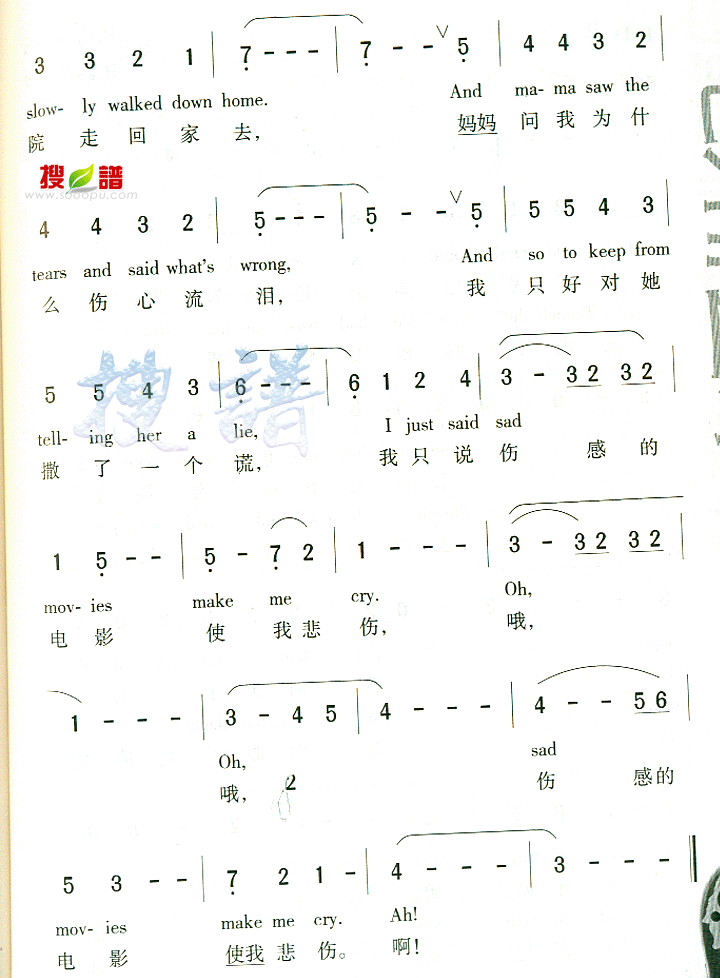 3 3 2 1 | 7 - - - | 7 - - ∨ 5 | 4 4 3 2 |
slow- ly walked down home. And ma- ma saw the
院 走 回 家 去， 妈妈 问 我 为 什
搜 譜
www.sooopu.com
4 4 3 2 | 5 - - - | 5 - - ∨ 5 | 5 5 4 3 |
tears and said what's wrong, And so to keep from
么 伤 心 流 泪， 我 只 好 对 她
搜 譜
5 5 4 3 | 6 - - - | 6 1 2 4 | 3 - 32 32 |
tell- ing her a lie, I just said sad
撒 了 一 个 谎， 我 只 说 伤 感 的
1 5 - - | 5 - 7 2 | 1 - - - | 3 - 32 32 |
mov- ies make me cry. Oh,
电 影 使 我 悲 伤， 哦，
1 - - - | 3 - 4 5 | 4 - - - | 4 - - 56 |
Oh, sad
哦， 2 伤 感 的
5 3 - - | 7 2 1 - | 4 - - - | 3 - - - ‖
mov- ies make me cry. Ah!
电 影 使我 悲 伤。 啊！